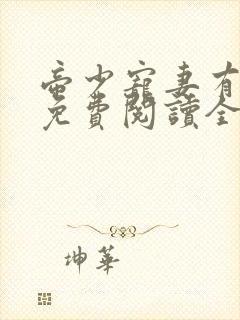 帝少寵妻有
免費閱讀全
坤華